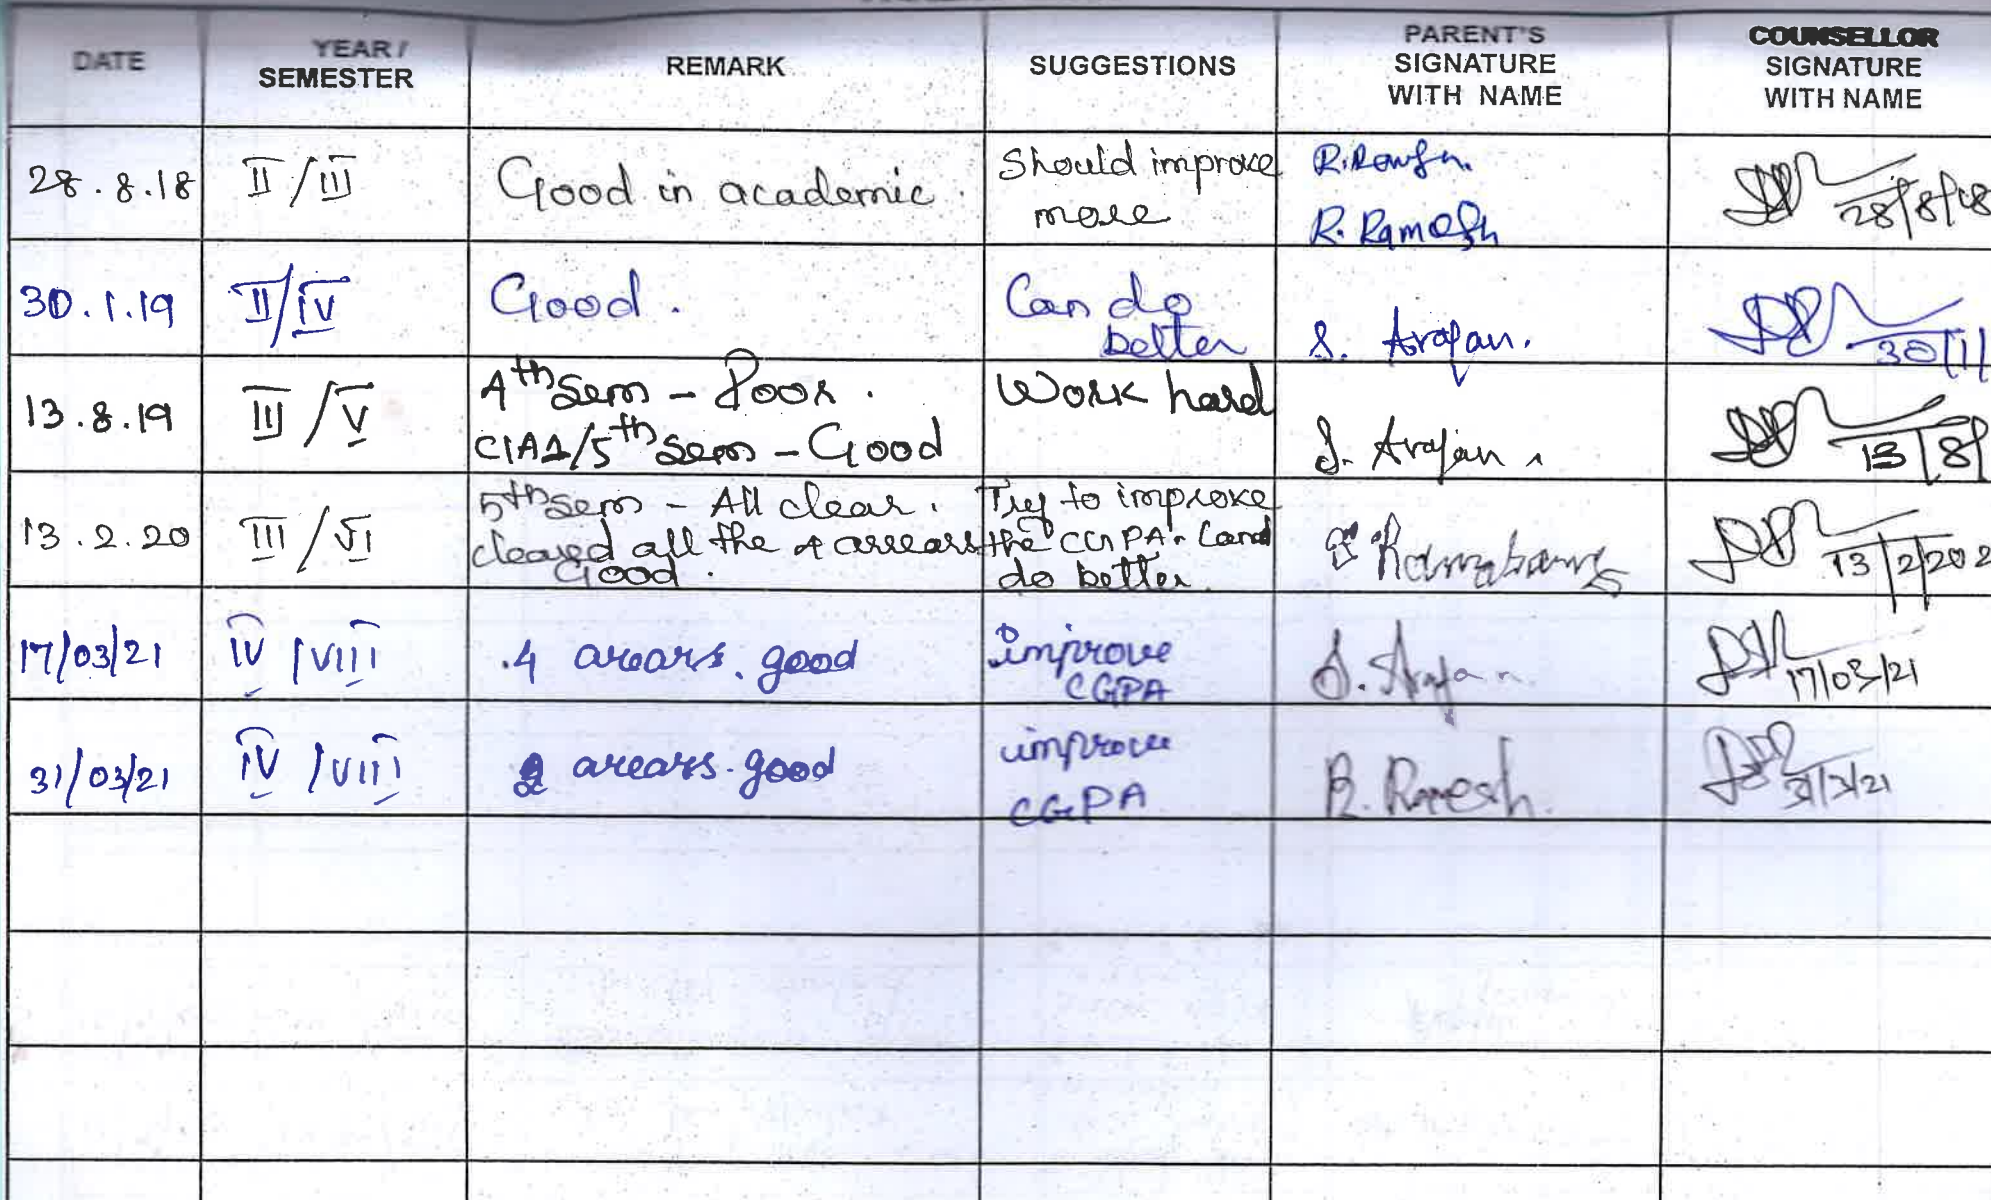 DATE
YEAR /
SEMESTER
REMARK
SUGGESTIONS
PARENT'S
SIGNATURE
WITH NAME
COUNSELLOR
SIGNATURE
WITH NAME
28.8.18
II / III
Good in academic.
Should improve
more
R. Ramesh
28/8/18
30.1.19
II/IV
Good.
Can do
better
S. Arajan.
30/1/
13.8.19
III / V
4th Sem - Poor.
CIA1/5th Sem - Good
Work hard
S. Arajan.
13/8/
13.2.20
III / VI
5th Sem - All clear.
cleared all the 4 arrears
Good.
Try to improve
the CGPA. Can
do better.
13/2/202
17/03/21
IV / VIII
4 arears. good
improve
CGPA
S. Arajan
17/03/21
31/03/21
IV / VIII
2 arears. good
improve
CGPA
R. Ramesh.
31/3/21